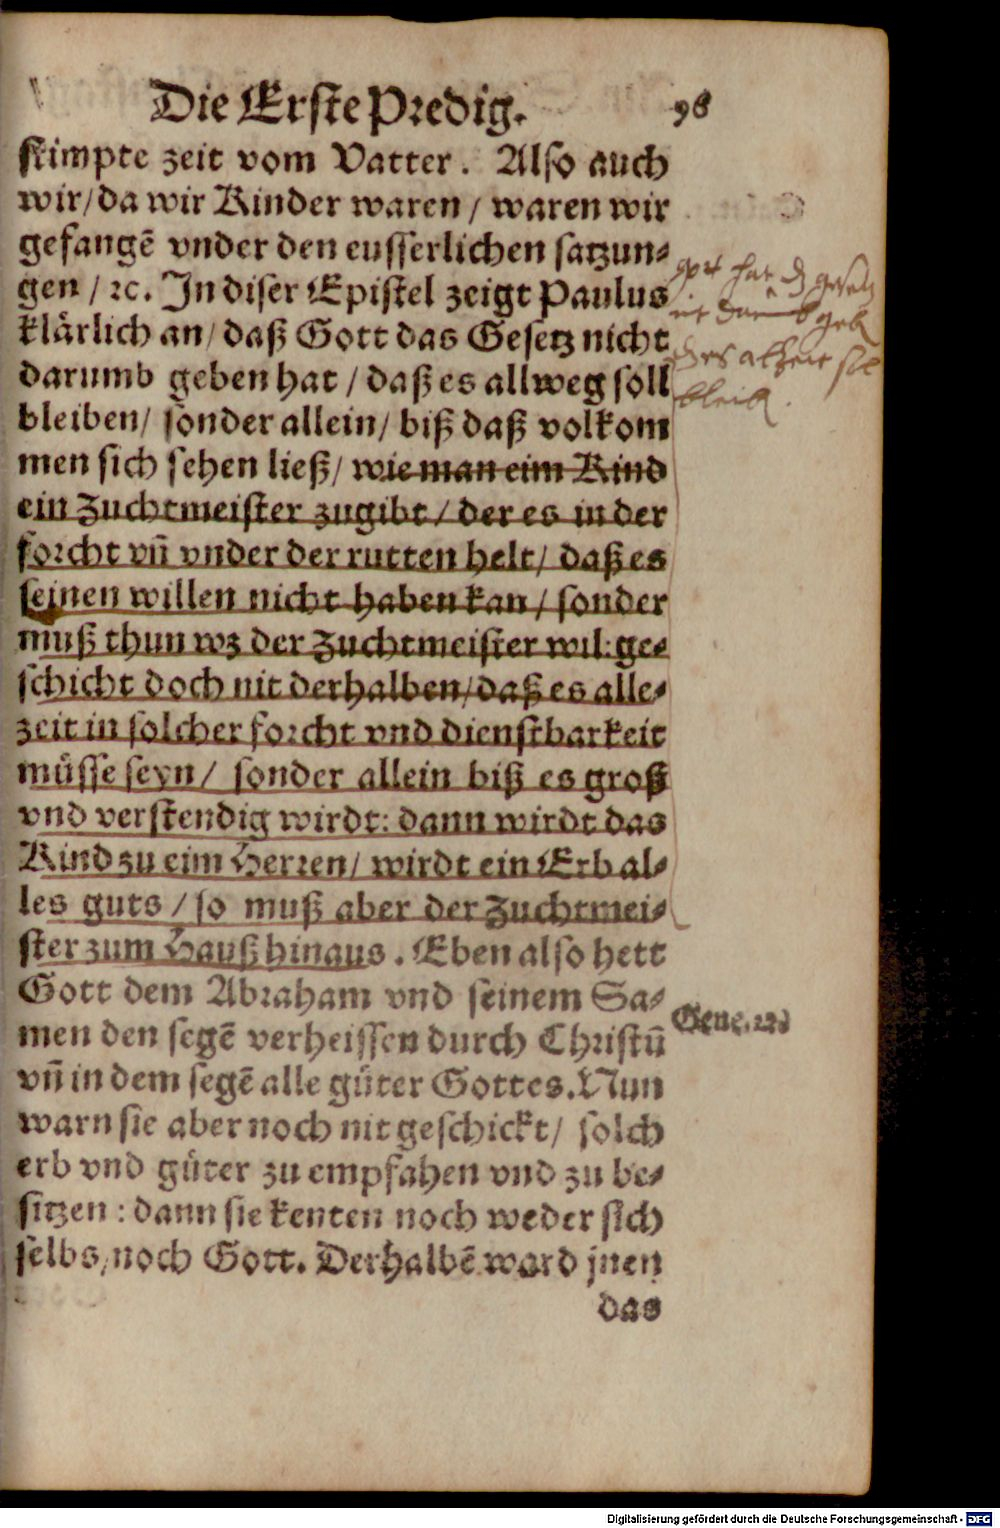 Die Erste Predig. 98
stimpte zeit vom Vatter. Also auch
wir/ da wir Kinder waren / waren wir
gefangẽ vnder den eusserlichen satzun-
gen / ꝛc. In diser Epistel zeigt Paulus
klärlich an/ daß Gott das Gesetz nicht
darumb geben hat / daß es allweg soll
bleiben/ sonder allein/ biß daß volkom
men sich sehen ließ/ wie man eim Kind
ein Zuchtmeister zugibt / der es in der
forcht vñ vnder der rutten helt/ daß es
seinen willen nicht haben kan / sonder
muß thun wz der Zuchtmeister wil: ge-
schicht doch nit derhalben/ daß es alle-
zeit in solcher forcht vnd dienstbarkeit
müsse seyn/ sonder allein biß es groß
vnd verstendig wirdt: dann wirdt das
Kind zu eim Herren/ wirdt ein Erb al-
les guts / so muß aber der Zuchtmei-
ster zum Hauß hinaus. Eben also hett
Gott dem Abraham vnd seinem Sa-
men den segẽ verheissen durch Christũ
vñ in dem segẽ alle güter Gottes. Nun
warn sie aber noch nit geschickt/ solch
erb vnd güter zu empfahen vnd zu be-
sitzen: dann sie kenten noch weder sich
selbs/ noch Gott. Derhalbẽ ward jnen
das
got hat
es alzeit
Gene. 22.
Digitalisierung gefördert durch die Deutsche Forschungsgemeinschaft - DFG